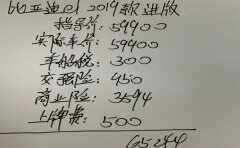 比亚迪e1 2019款进版
指导价: 59900
实际车价: 59400
车船税: 300
交强险: 950
商业险: 3594
上牌费: 500
65244